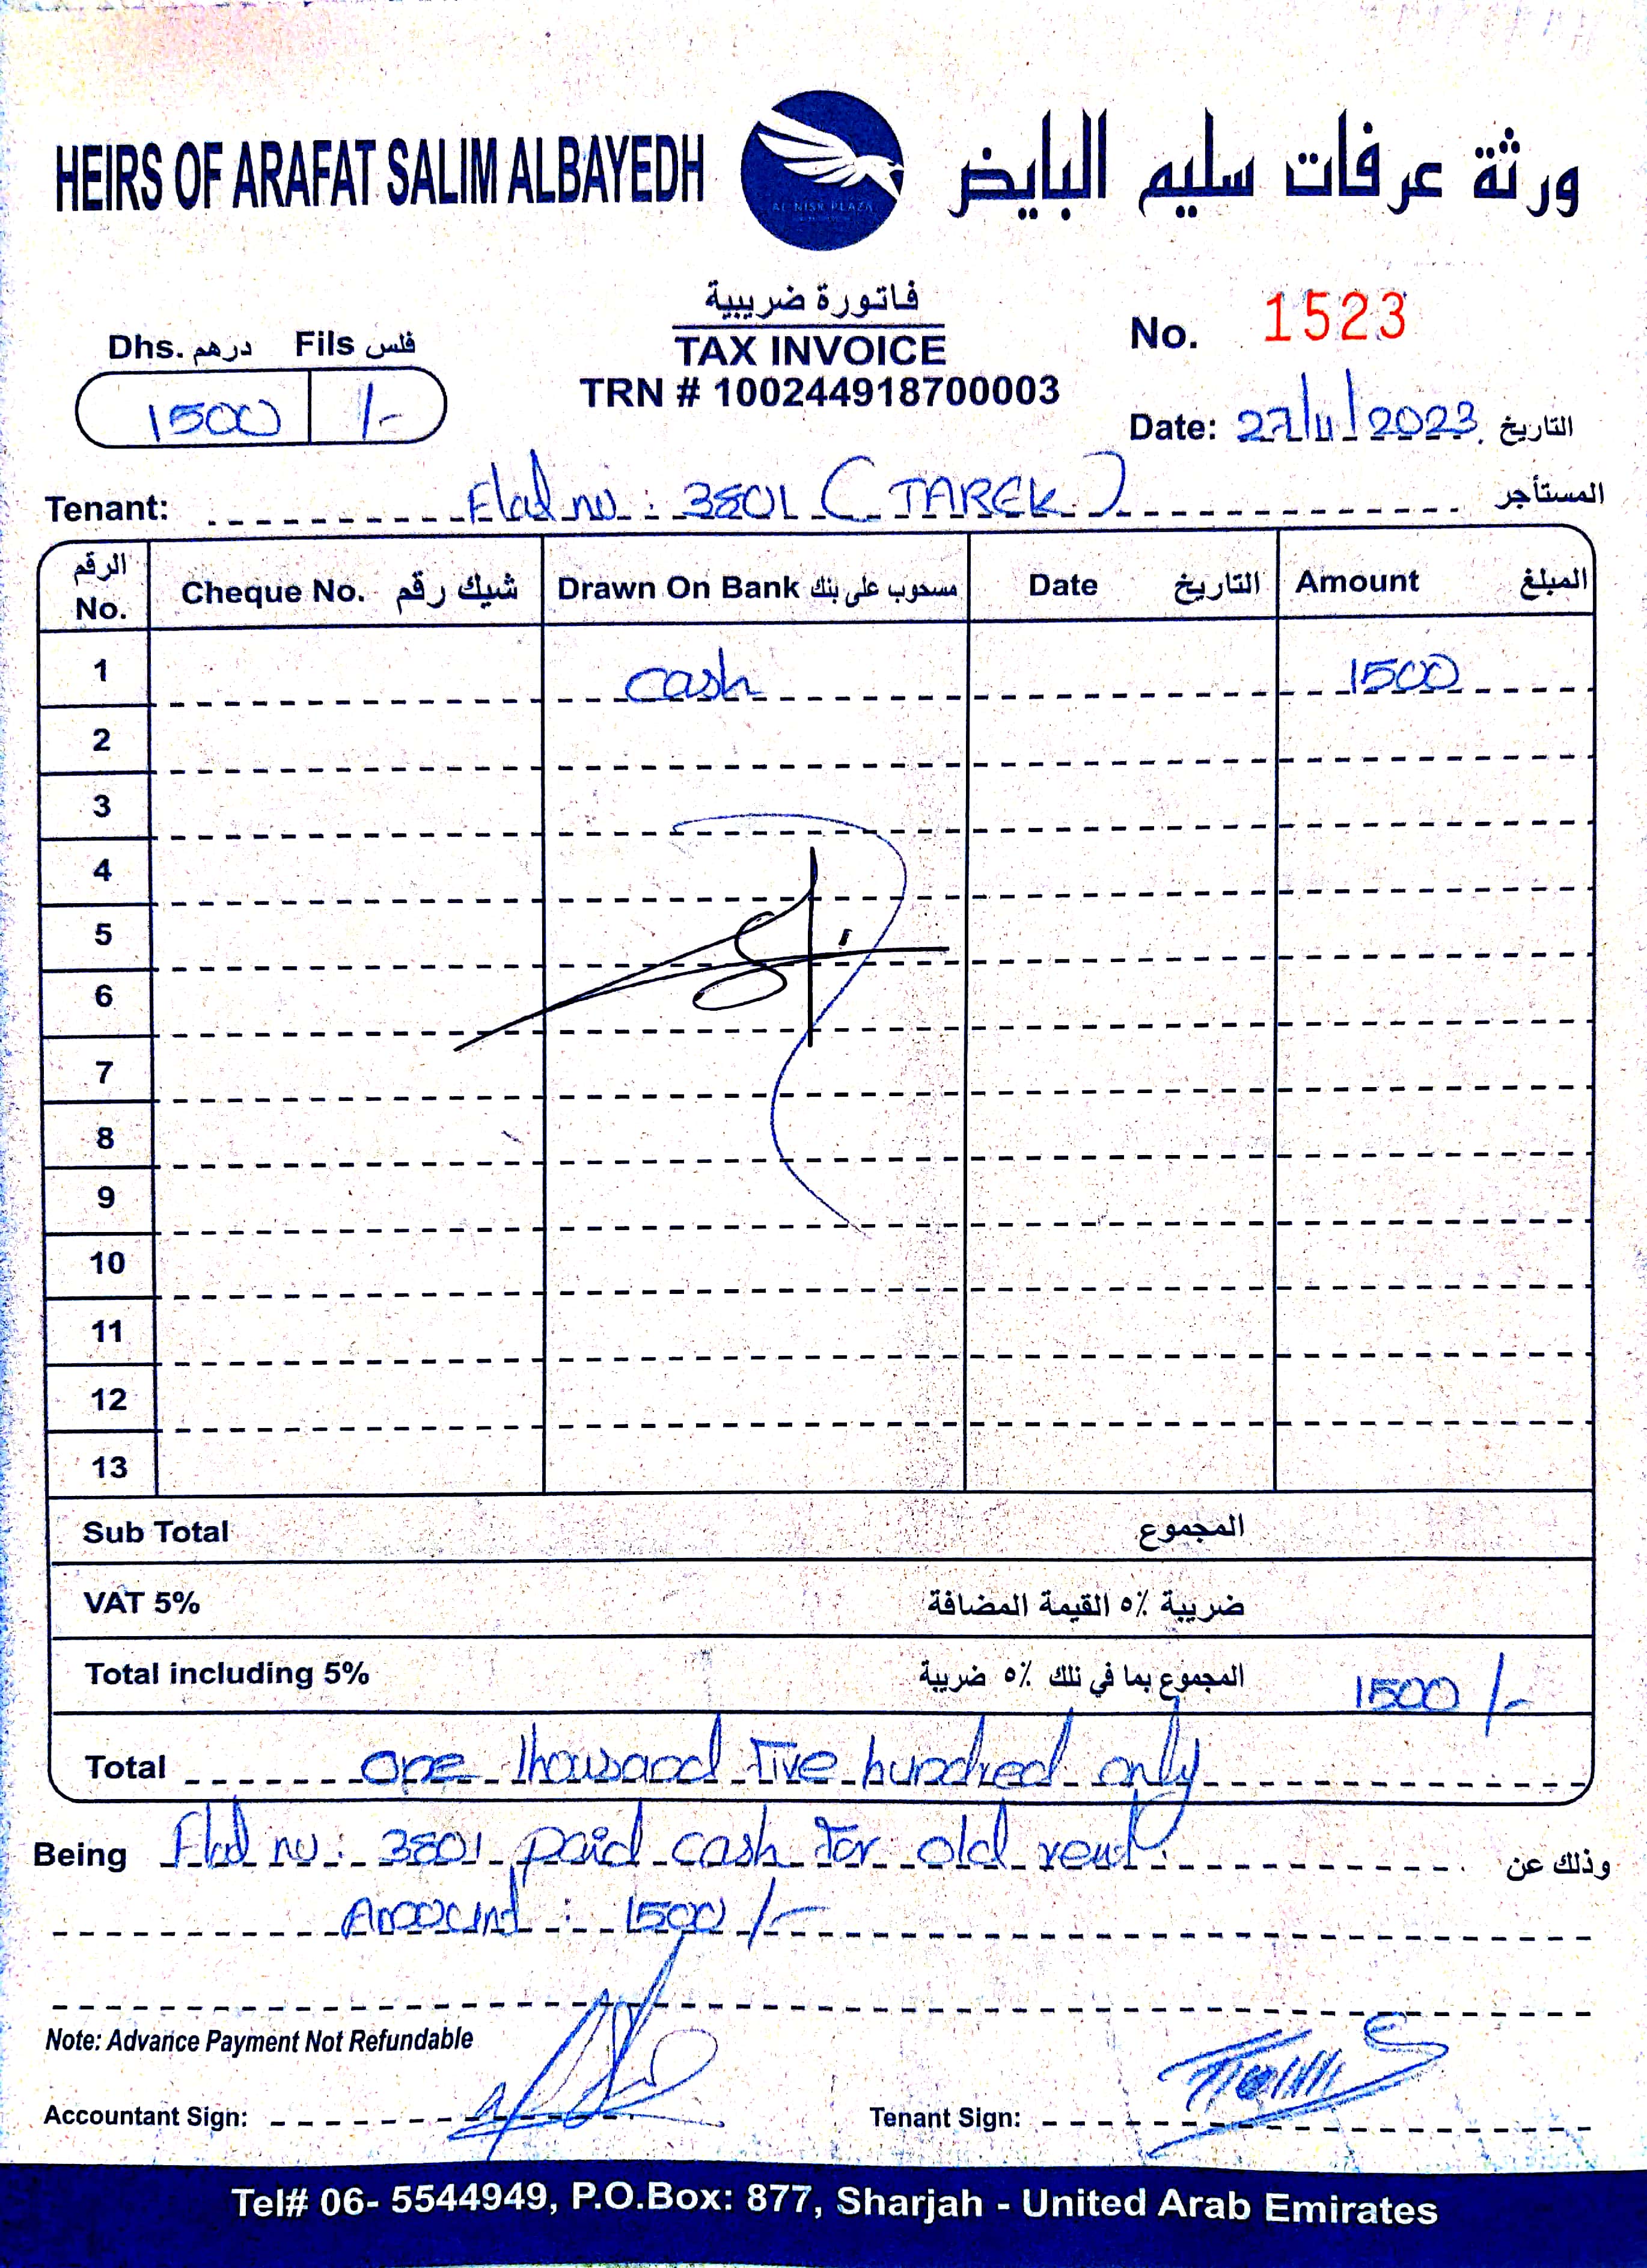 HEIRS OF ARAFAT SALIM ALBAYEDH
AL NISR PLAZA
ورثة عرفات سليم البايض
فاتورة ضريبية
TAX INVOICE
TRN # 100244918700003
Dhs. درهم Fils فلس
1500 /-
No. 1523
Date: 27/11/2023 التاريخ
Tenant: Flat no: 3801 (TAREK) المستأجر
الرقم No. Cheque No. شيك رقم Drawn On Bank مسحوب على بنك Date التاريخ Amount المبلغ
1 cash 1500
2
3
4
5
6
7
8
9
10
11
12
13
Sub Total المجموع
VAT 5% ضريبة ٥٪ القيمة المضافة
Total including 5% المجموع بما في ذلك ٥٪ ضريبة 1500 /-
Total one thousand five hundred only
Being Flat no: 3801 paid cash for old rent. وذلك عن
Amount: 1500/-
Note: Advance Payment Not Refundable
Accountant Sign: Tenant Sign:
Tel# 06- 5544949, P.O.Box: 877, Sharjah - United Arab Emirates